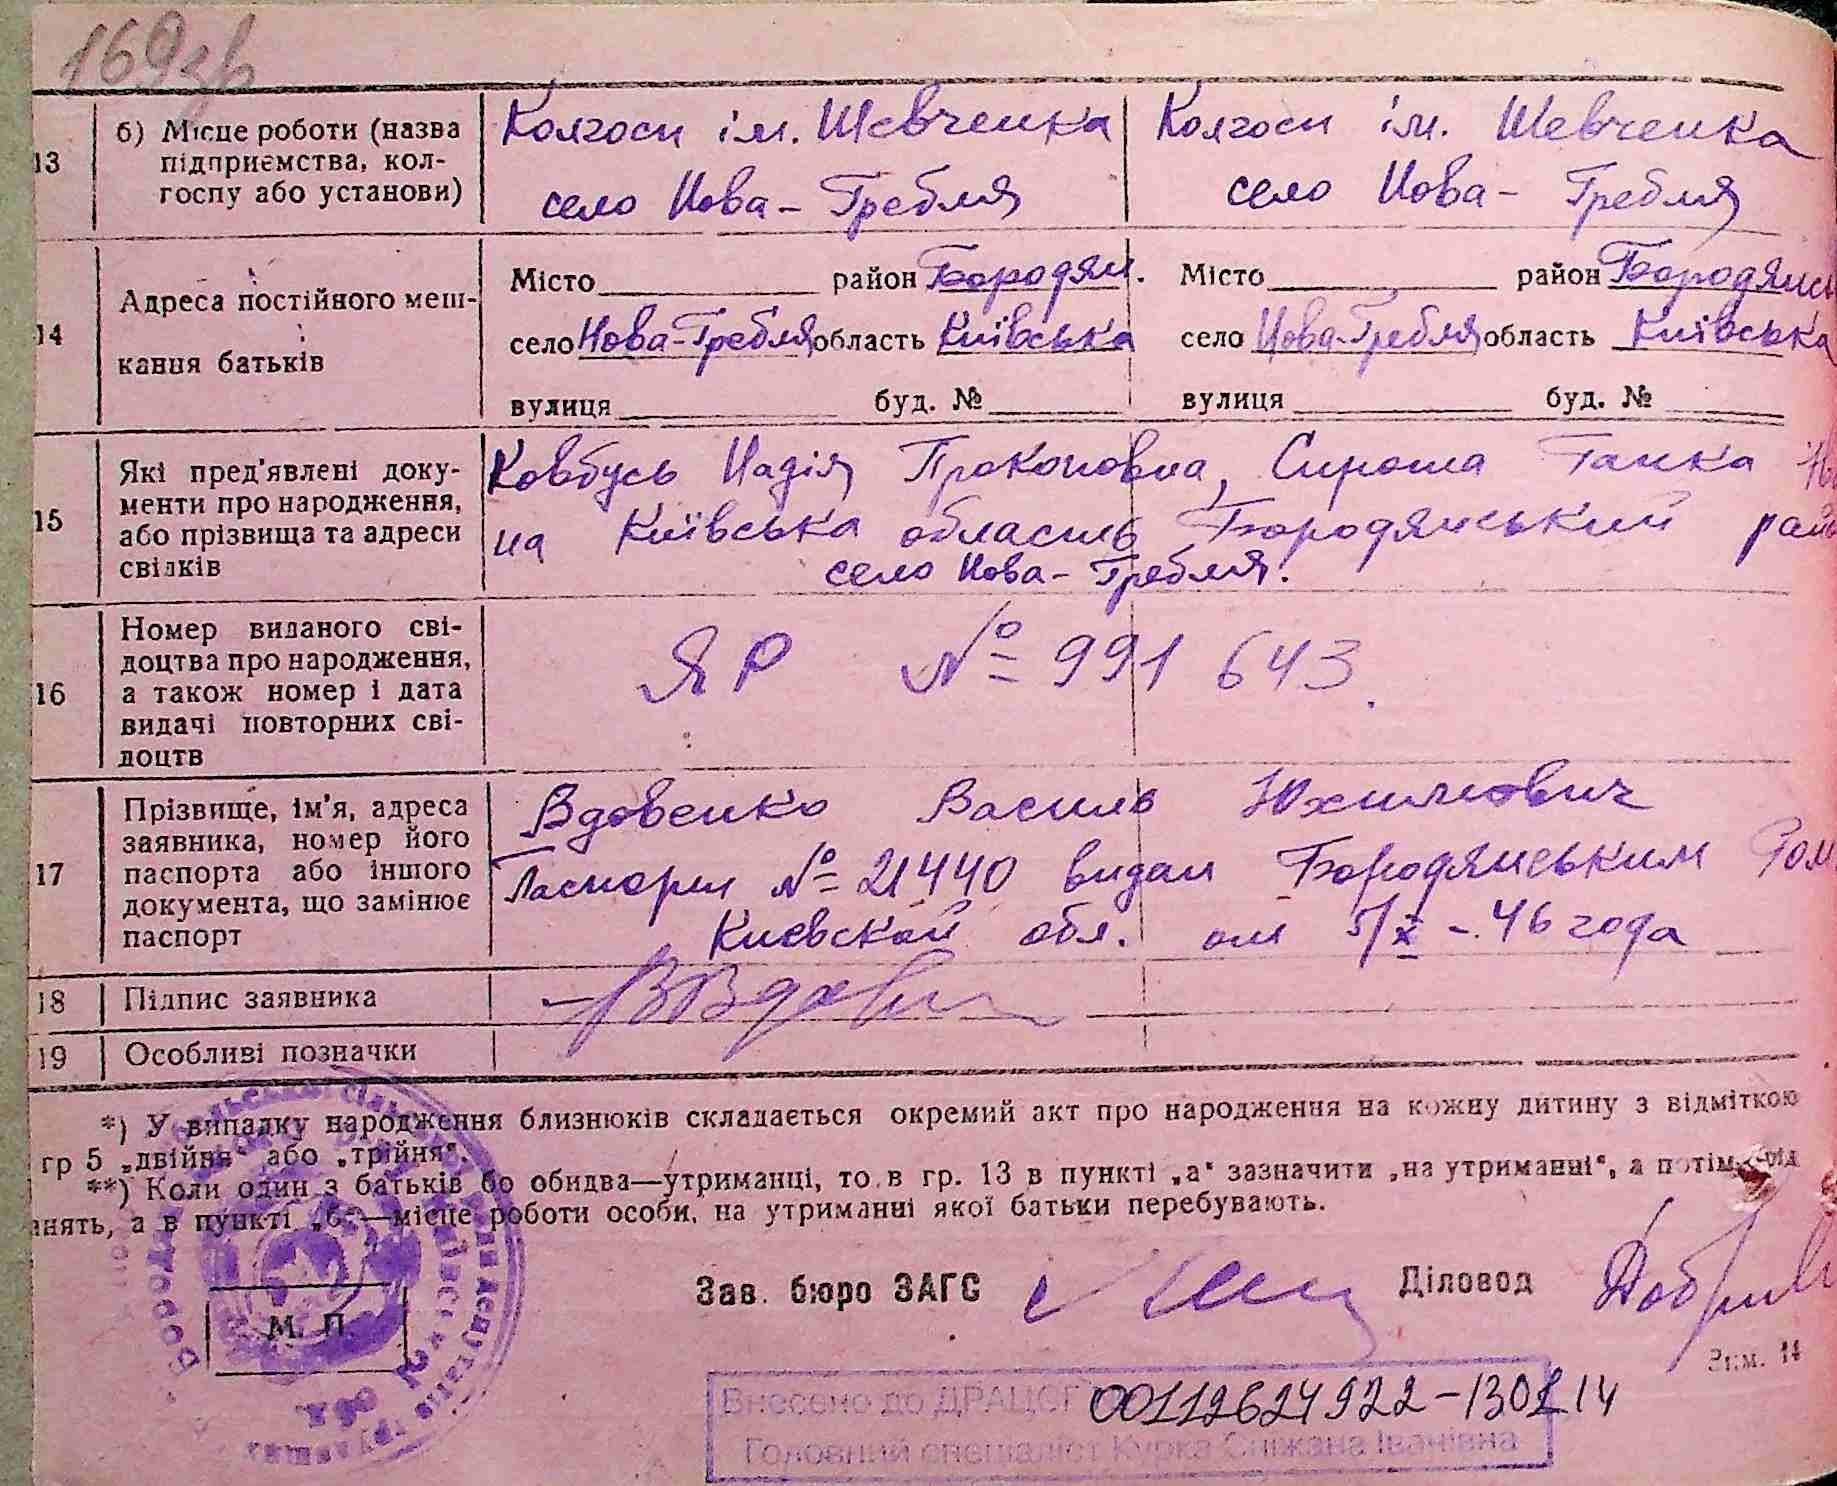 169зв
13 б) Місце роботи (назва підприємства, колгоспу або установи)
Колгосп ім. Шевченка
село Нова-Гребля
Колгосп ім. Шевченка
село Нова-Гребля
14 Адреса постійного мешкання батьків
Місто район Бородян.
село Нова-Гребля область Київська
вулиця буд. №
Місто район Бородянсь
село Нова-Гребля область Київська
вулиця буд. №
15 Які пред'явлені документи про народження, або прізвища та адреси свідків
Ковбусь Надія Прокоповна, Сирота Ганка
на Київська область Бородянський район
село Нова-Гребля.
16 Номер виданого свідоцтва про народження, а також номер і дата видачі повторних свідоцтв
ЯР № 991643.
17 Прізвище, ім'я, адреса заявника, номер його паспорта або іншого документа, що замінює паспорт
Вдовенко Василь Юхимович
Паспорт № 21440 видан Бородянським Ром
Киевской обл. от 5/X-46 года
18 Підпис заявника
19 Особливі позначки
*) У випадку народження близнюків складається окремий акт про народження на кожну дитину з відміткою
гр 5 „двійня" або „трійня".
**) Коли один з батьків бо обидва—утриманці, то в гр. 13 в пункті „а" зазначити „на утриманні", а потім від
анять, а в пункті „б"—місце роботи особи, на утриманні якої батьки перебувають.
Зав. бюро ЗАГС Діловод
М. П.
Зам. 14
Внесено до ДРАЦСГ 00112627922-130114
Головний спеціаліст Курка Сніжана Іванівна